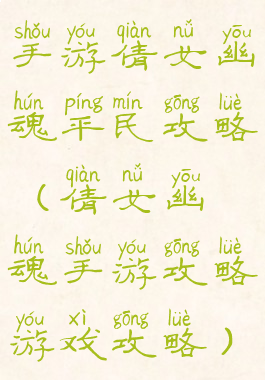 shǒu yóu qiàn nǚ yōu
手游倩女幽
hún píng mín gōng lüè
魂平民攻略
qiàn nǚ yōu
（倩女幽
hún shǒu yóu gōng lüè
魂手游攻略
yóu xì gōng lüè
游戏攻略）